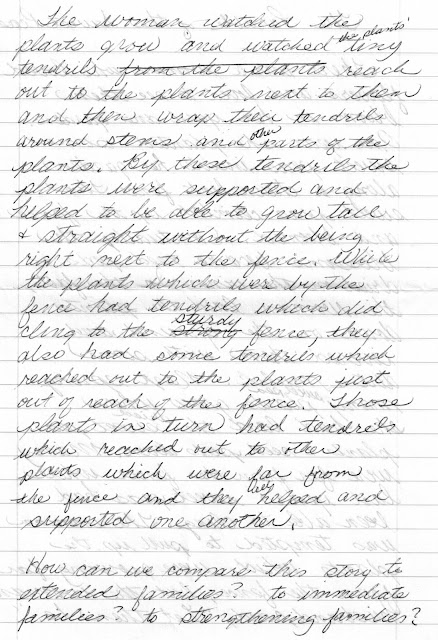 The woman watched the
plants grow and watched the plants' tiny
tendrils from the plants reach
out to the plants next to them
and then wrap their tendrils
around stems and other parts of the
plants. By these tendrils the
plants were supported and
helped to be able to grow tall
& straight without the being
right next to the fence. While
the plants which were by the
fence had tendrils which did
cling to the strong sturdy fence, they
also had some tendrils which
reached out to the plants just
out of reach of the fence. Those
plants in turn had tendrils
which reached out to other
plants which were far from
the fence and they helped and
supported one another.
How can we compare this story to
extended families? to immediate
families? to strengthening families?